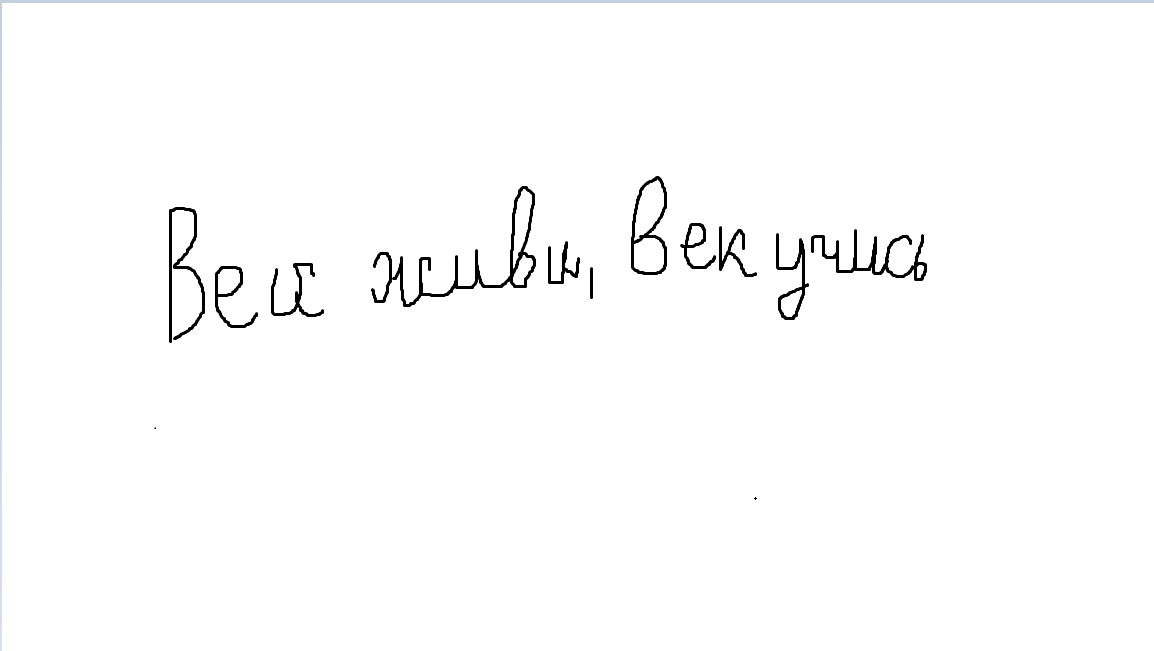 Век живи, век учись